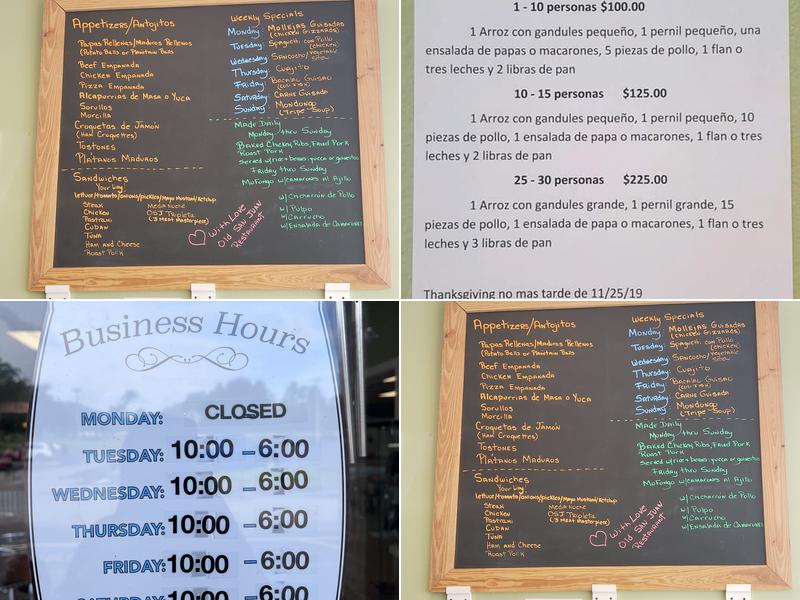 Appetizers/Antojitos
Papas Rellenas/Maduros Rellenos
(Potato Balls or Plantain Balls
Beef Empanada
Chicken Empanada
Pizza Empanada
Alcapurrias de Masa o Yuca
Sorullos
Morcilla
Croquetas de Jamón
(Ham Croquettes)
Tostones
Plátanos Maduros
Sandwiches
Your Way!
lettuce/tomato/onions/pickles/Mayo Mustard/Ketchup
Steak
Chicken
Pastrami
Cuban
Tuna
Ham and Cheese
Roast Pork
Media Noche
OSJ Tripleta
(3 Meat Masterpiece)
Weekly Specials
Monday: Mollejas Guisadas
(Chicken Gizzards)
Tuesday: Spaghetti con Pollo
(chicken)
Wednesday: Sancocho/Vegetable
Stew
Thursday: Cuajito
Friday: Bacalao Guisao
Saturday: Carne Guisada
Sunday: Mondongo
("Tripe" Soup)
Made Daily
Monday thru Sunday
Baked Chicken, Ribs, Fried Pork
Roast Pork
Served w/rice + beans, yucca or guineitos
Friday thru Sunday
Mofongo w/camarones al Ajillo
w/ Chicharrón de Pollo
w/ Pulpo
w/ Carrucho
w/ Ensalada de Camarones
With Love
Old San Juan
Restaurant
1 - 10 personas $100.00
1 Arroz con gandules pequeño, 1 pernil pequeño, una
ensalada de papas o macarones, 5 piezas de pollo, 1 flan o
tres leches y 2 libras de pan
10 - 15 personas $125.00
1 Arroz con gandules pequeño, 1 pernil pequeño, 10
piezas de pollo, 1 ensalada de papa o macarones, 1 flan o tres
leches y 2 libras de pan
25 - 30 personas $225.00
1 Arroz con gandules grande, 1 pernil grande, 15
piezas de pollo, 1 ensalada de papa o macarones, 1 flan o tres
leches y 3 libras de pan
Thanksgiving no mas tarde de 11/25/19
Business Hours
MONDAY: CLOSED
TUESDAY: 10:00 – 6:00
WEDNESDAY: 10:00 – 6:00
THURSDAY: 10:00 – 6:00
FRIDAY: 10:00 – 6:00
SATURDAY: 10:00 – 6:00
Appetizers/Antojitos
Papas Rellenas/Maduros Rellenos
(Potato Balls or Plantain Balls
Beef Empanada
Chicken Empanada
Pizza Empanada
Alcapurrias de Masa o Yuca
Sorullos
Morcilla
Croquetas de Jamón
(Ham Croquettes)
Tostones
Plátanos Maduros
Sandwiches
Your Way!
lettuce/tomato/onions/pickles/Mayo Mustard/Ketchup
Steak
Chicken
Pastrami
Cuban
Tuna
Ham and Cheese
Roast Pork
Media Noche
OSJ Tripleta
(3 Meat Masterpiece)
Weekly Specials
Monday: Mollejas Guisadas
(Chicken Gizzards)
Tuesday: Spaghetti con Pollo
(chicken)
Wednesday: Sancocho/Vegetable
Stew
Thursday: Cuajito
Friday: Bacalao Guisao
Saturday: Carne Guisada
Sunday: Mondongo
("Tripe" Soup)
Made Daily
Monday thru Sunday
Baked Chicken, Ribs, Fried Pork
Roast Pork
Served w/rice + beans, yucca or guineitos
Friday thru Sunday
Mofongo w/camarones al Ajillo
w/ Chicharrón de Pollo
w/ Pulpo
w/ Carrucho
w/ Ensalada de Camarones
With Love
Old San Juan
Restaurant